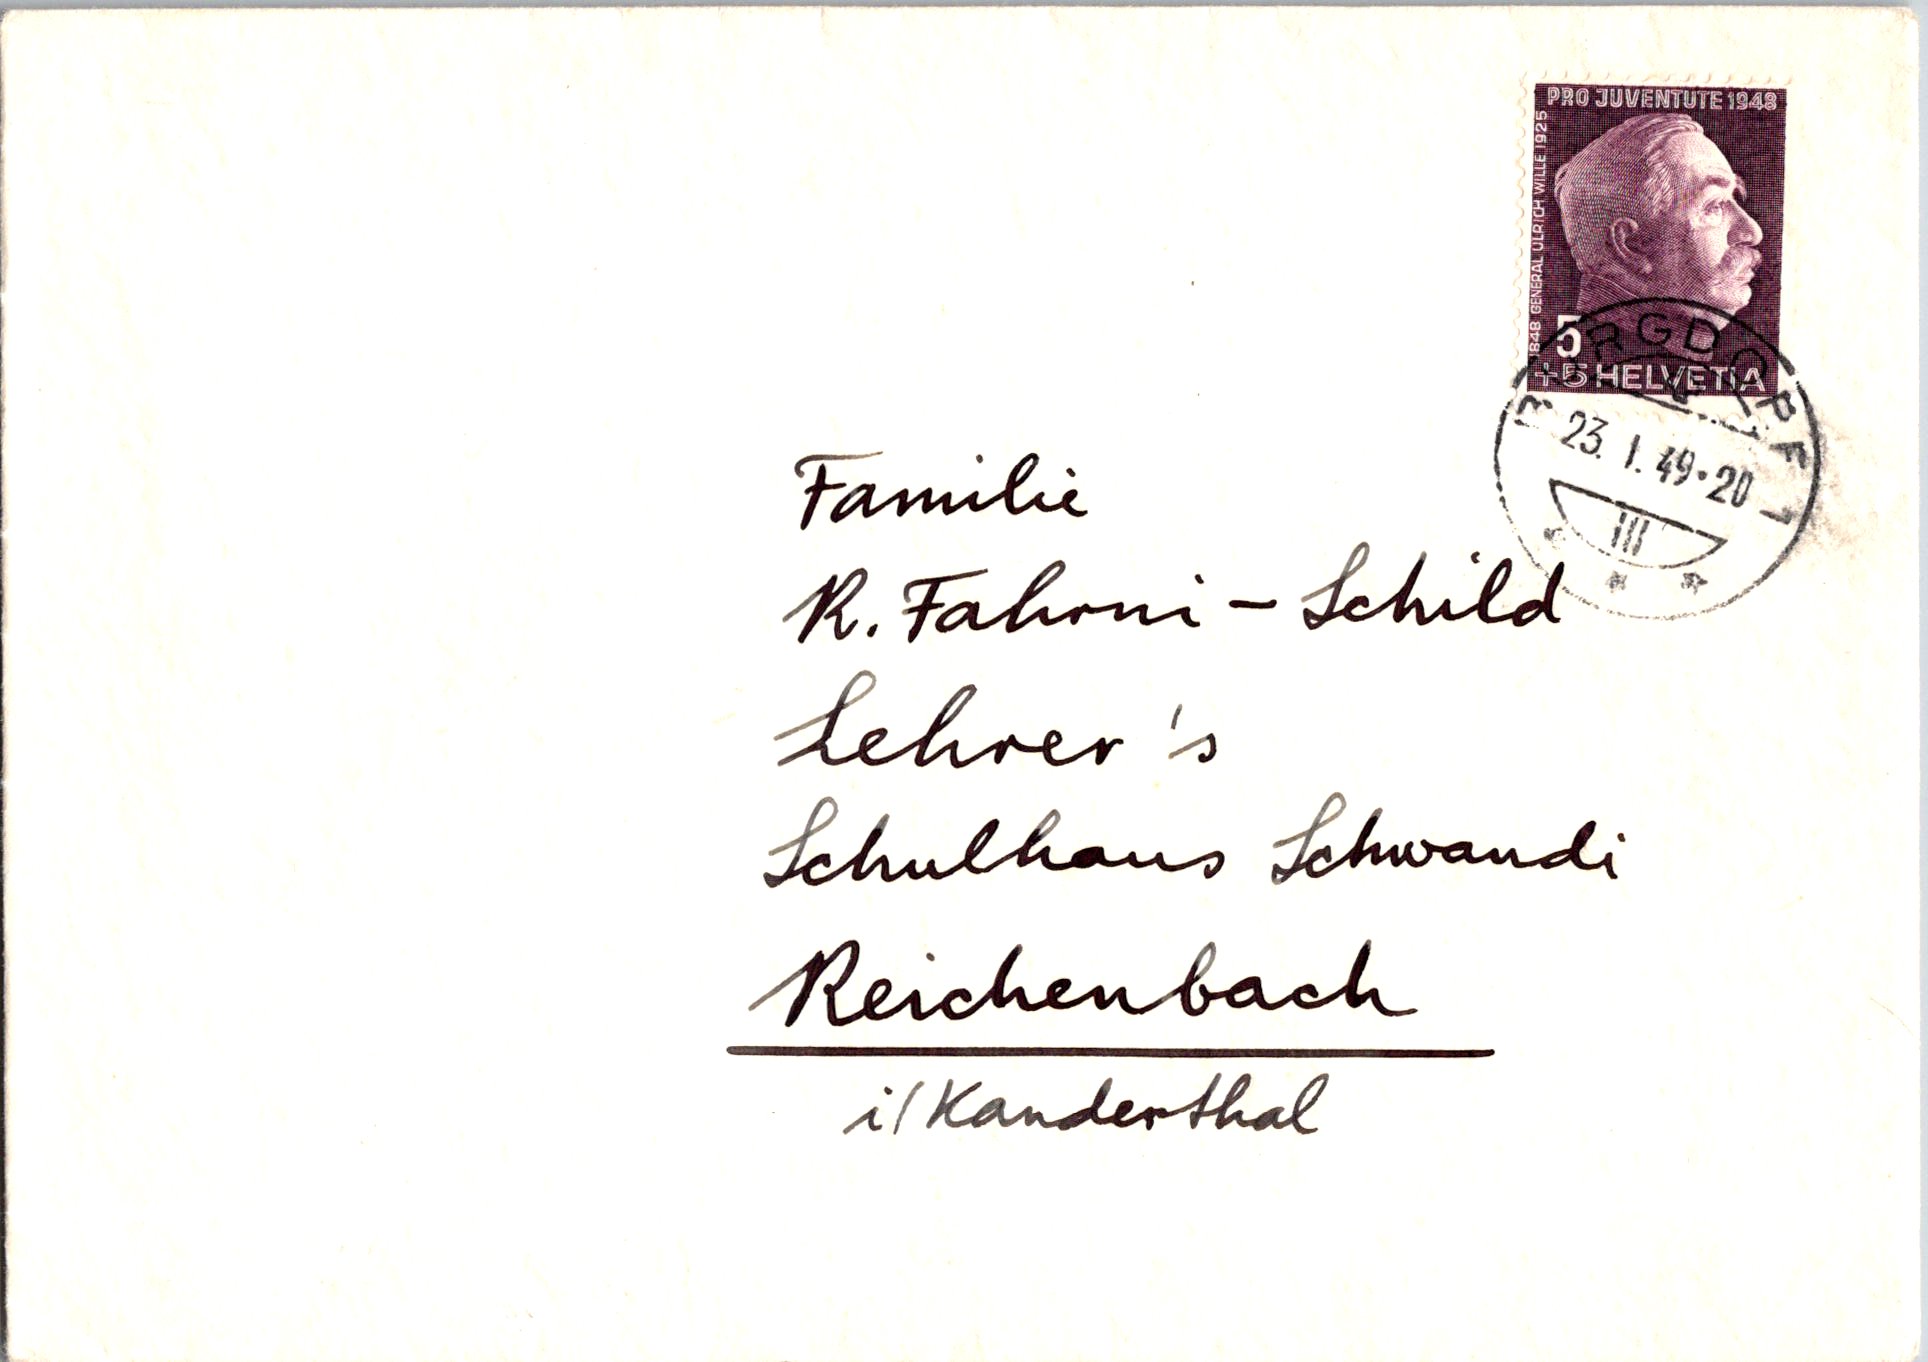 PRO JUVENTUTE 1948
1848 GENERAL ULRICH WILLE 1925
5
+5 HELVETIA
BURGDORF 1
23. I. 49·20
III
Familie
R. Fahrni – Schild
Lehrer's
Schulhaus Schwandi
Reichenbach
i/Kanderthal